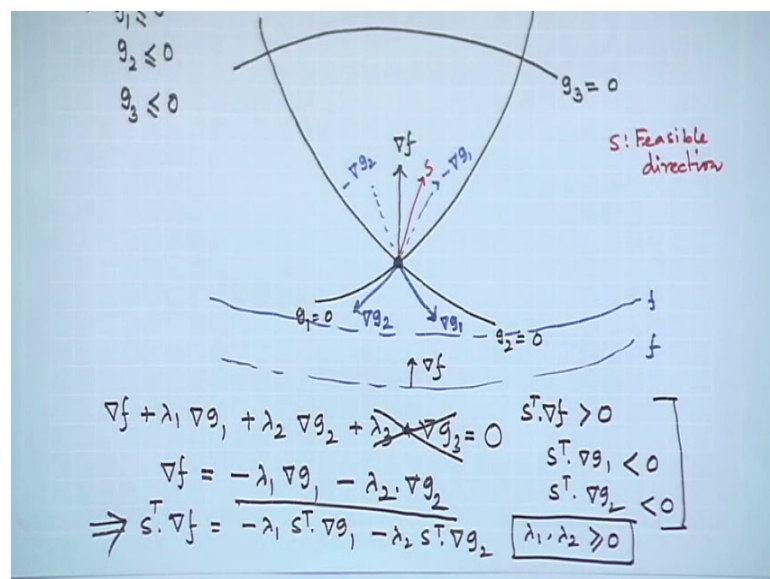 g₁ ≤ 0
g₂ ≤ 0
g₃ ≤ 0
g₃ = 0
S: Feasible
direction
∇f
-∇g₂
S
-∇g₁
g₁ = 0
∇g₂
∇g₁
g₂ = 0
f
f
∇f
∇f + λ₁ ∇g₁ + λ₂ ∇g₂ + λ₃ ∇g₃ = 0
∇f = -λ₁ ∇g₁ - λ₂.∇g₂
⇒ Sᵀ.∇f = -λ₁ Sᵀ.∇g₁ - λ₂ Sᵀ.∇g₂
Sᵀ.∇f > 0
Sᵀ.∇g₁ < 0
Sᵀ.∇g₂ < 0
λ₁, λ₂ ≥ 0